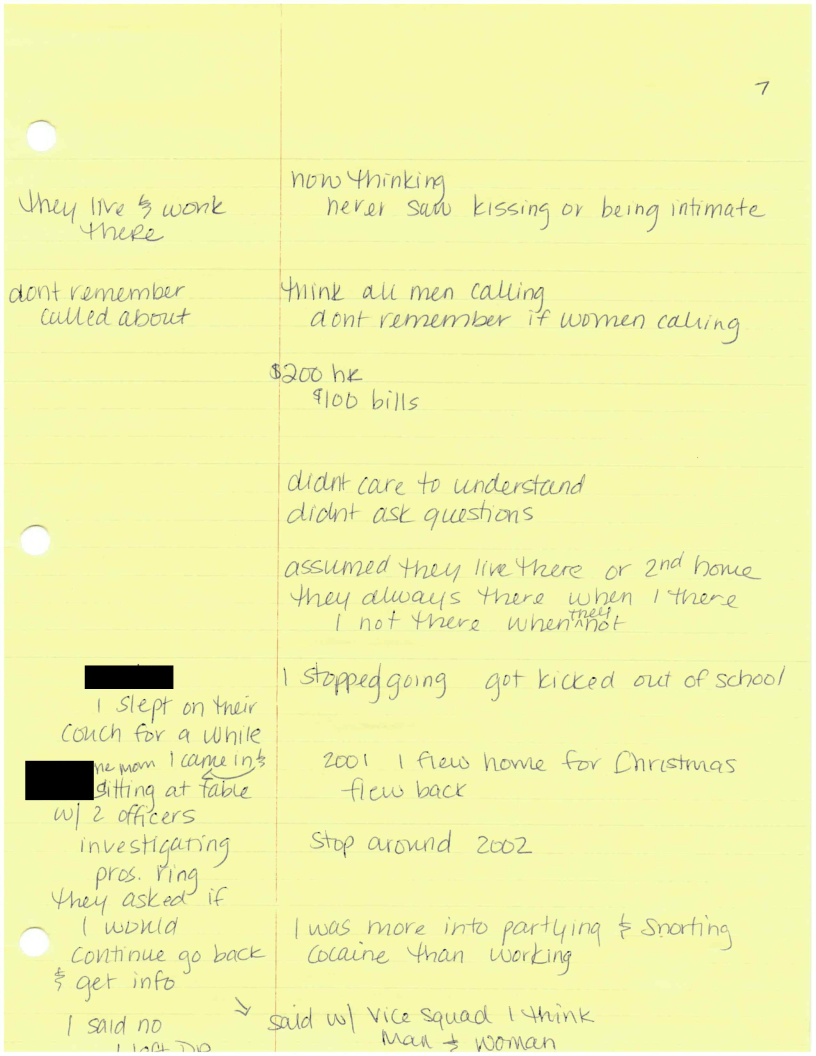 7
now thinking
never saw kissing or being intimate
they live & work
there
dont remember
called about
think all men calling
dont remember if women calling
$200 hr
$100 bills
didnt care to understand
didnt ask questions
assumed they live there or 2nd home
they always there when I there
I not there when they not
I stopped going got kicked out of school
I slept on their
couch for a while
mom I came in &
sitting at table
w/ 2 officers
investigating
pros. ring
they asked if
I would
continue go back
& get info
I said no
2001 I flew home for Christmas
flew back
Stop around 2002
I was more into partying & snorting
cocaine than working
said w/ Vice Squad I think
Man & woman